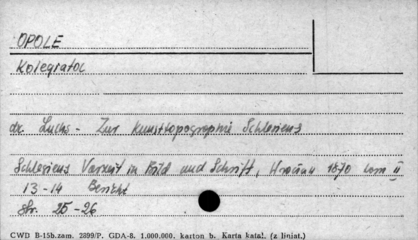 OPOLE
Kolegiatoc
dr. Luchs - Zur Kunsttopographie Schlesiens
Schlesiens Vorzeit in Bild und Schrift, 1870 tom II
13-14 Bericht
Str. 25-26
CWD B-15b.zam. 2899/P. GDA-8. 1.000.000. karton b. Karta katal. (z liniat.)